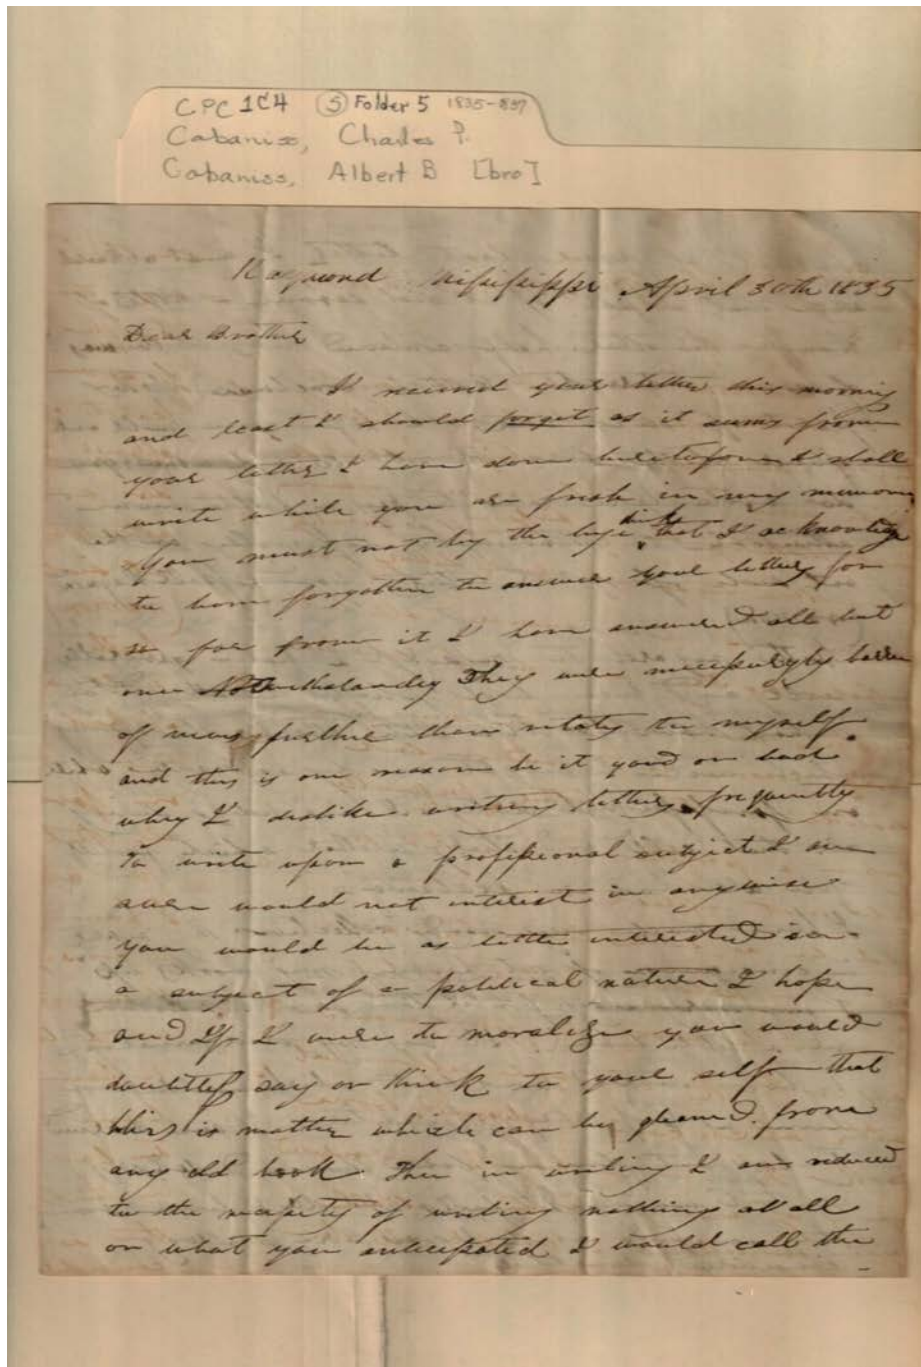 CPC 1C4 (5) Folder 5 1835-1837
Cabaniss, Charles P.
Cabaniss, Albert B [bro]
Raymond Mississippi April 30th 1835
Dear Brother
I received your letter this morning
and least I should forget as it seems from
your letter I have done heretofore I shall
write while you are fresh in my memory
You must not by the bye think that I acknowledge
to have forgotten to answer your letters for
so far from it I have answered all but
one Notwithstanding They were necessaryly barren
of news further than relates to myself
and this is one reason be it good or bad
why I dislike writing letters frequently
To write upon a professional subject I am
aware would not interest in anywise
you would be as little interested in
a subject of a political nature I hope
and If I were to moralize you would
doubtless say or think to your self that
this is matter which can be gleaned from
any old book Then in writing I am reduced
to the necessity of writing nothing at all
or what you anticipated I would call the